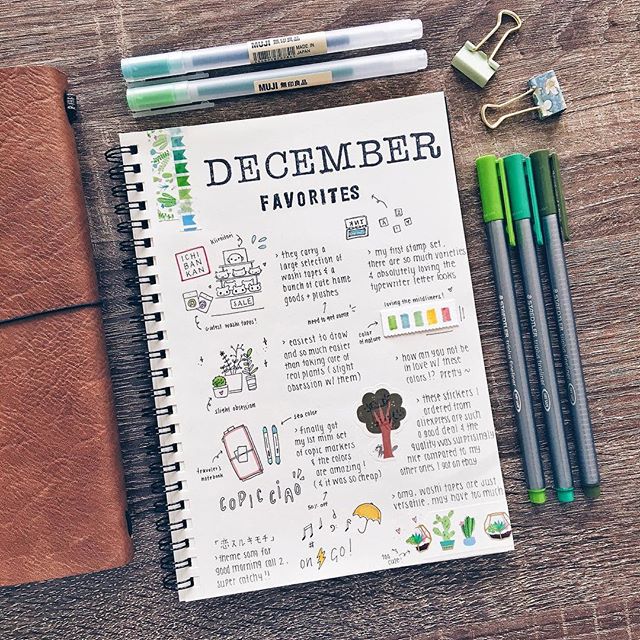 MUJI MADE IN JAPAN
MUJI 無印良品
DECEMBER
FAVORITES
ICHI
BAN
KAN
SALE
cutest washi tapes!
› they carry a
large selection of
washi tapes & a
bunch of cute home
goods + plushes
need to get some
› my first stamp set.
there are so much varieties
& absolutely loving the
typewriter letter looks
loving the mildliners!
color
of nature
› easiest to draw
and so much easier
than taking care of
real plants (slight
obsession w/ them)
slight obsession
› how can you not
be in love w/ these
colors!? Pretty ~
sea color
travelers
notebook
› finally got
my 1st mini set
of copic markers
& the colors
are amazing!
(& it was so cheap)
50% off
COPIC CIAO
› these stickers I
ordered from
aliexpress are such
a good deal & the
quality was surprisingly
nice compared to my
other ones I got on ebay
› omg. washi tapes are just
versatile. may have too much
「恋スルキモチ」
› theme song for
good morning call 2.
super catchy!!
ON GO!
too
cute!
STAEDTLER